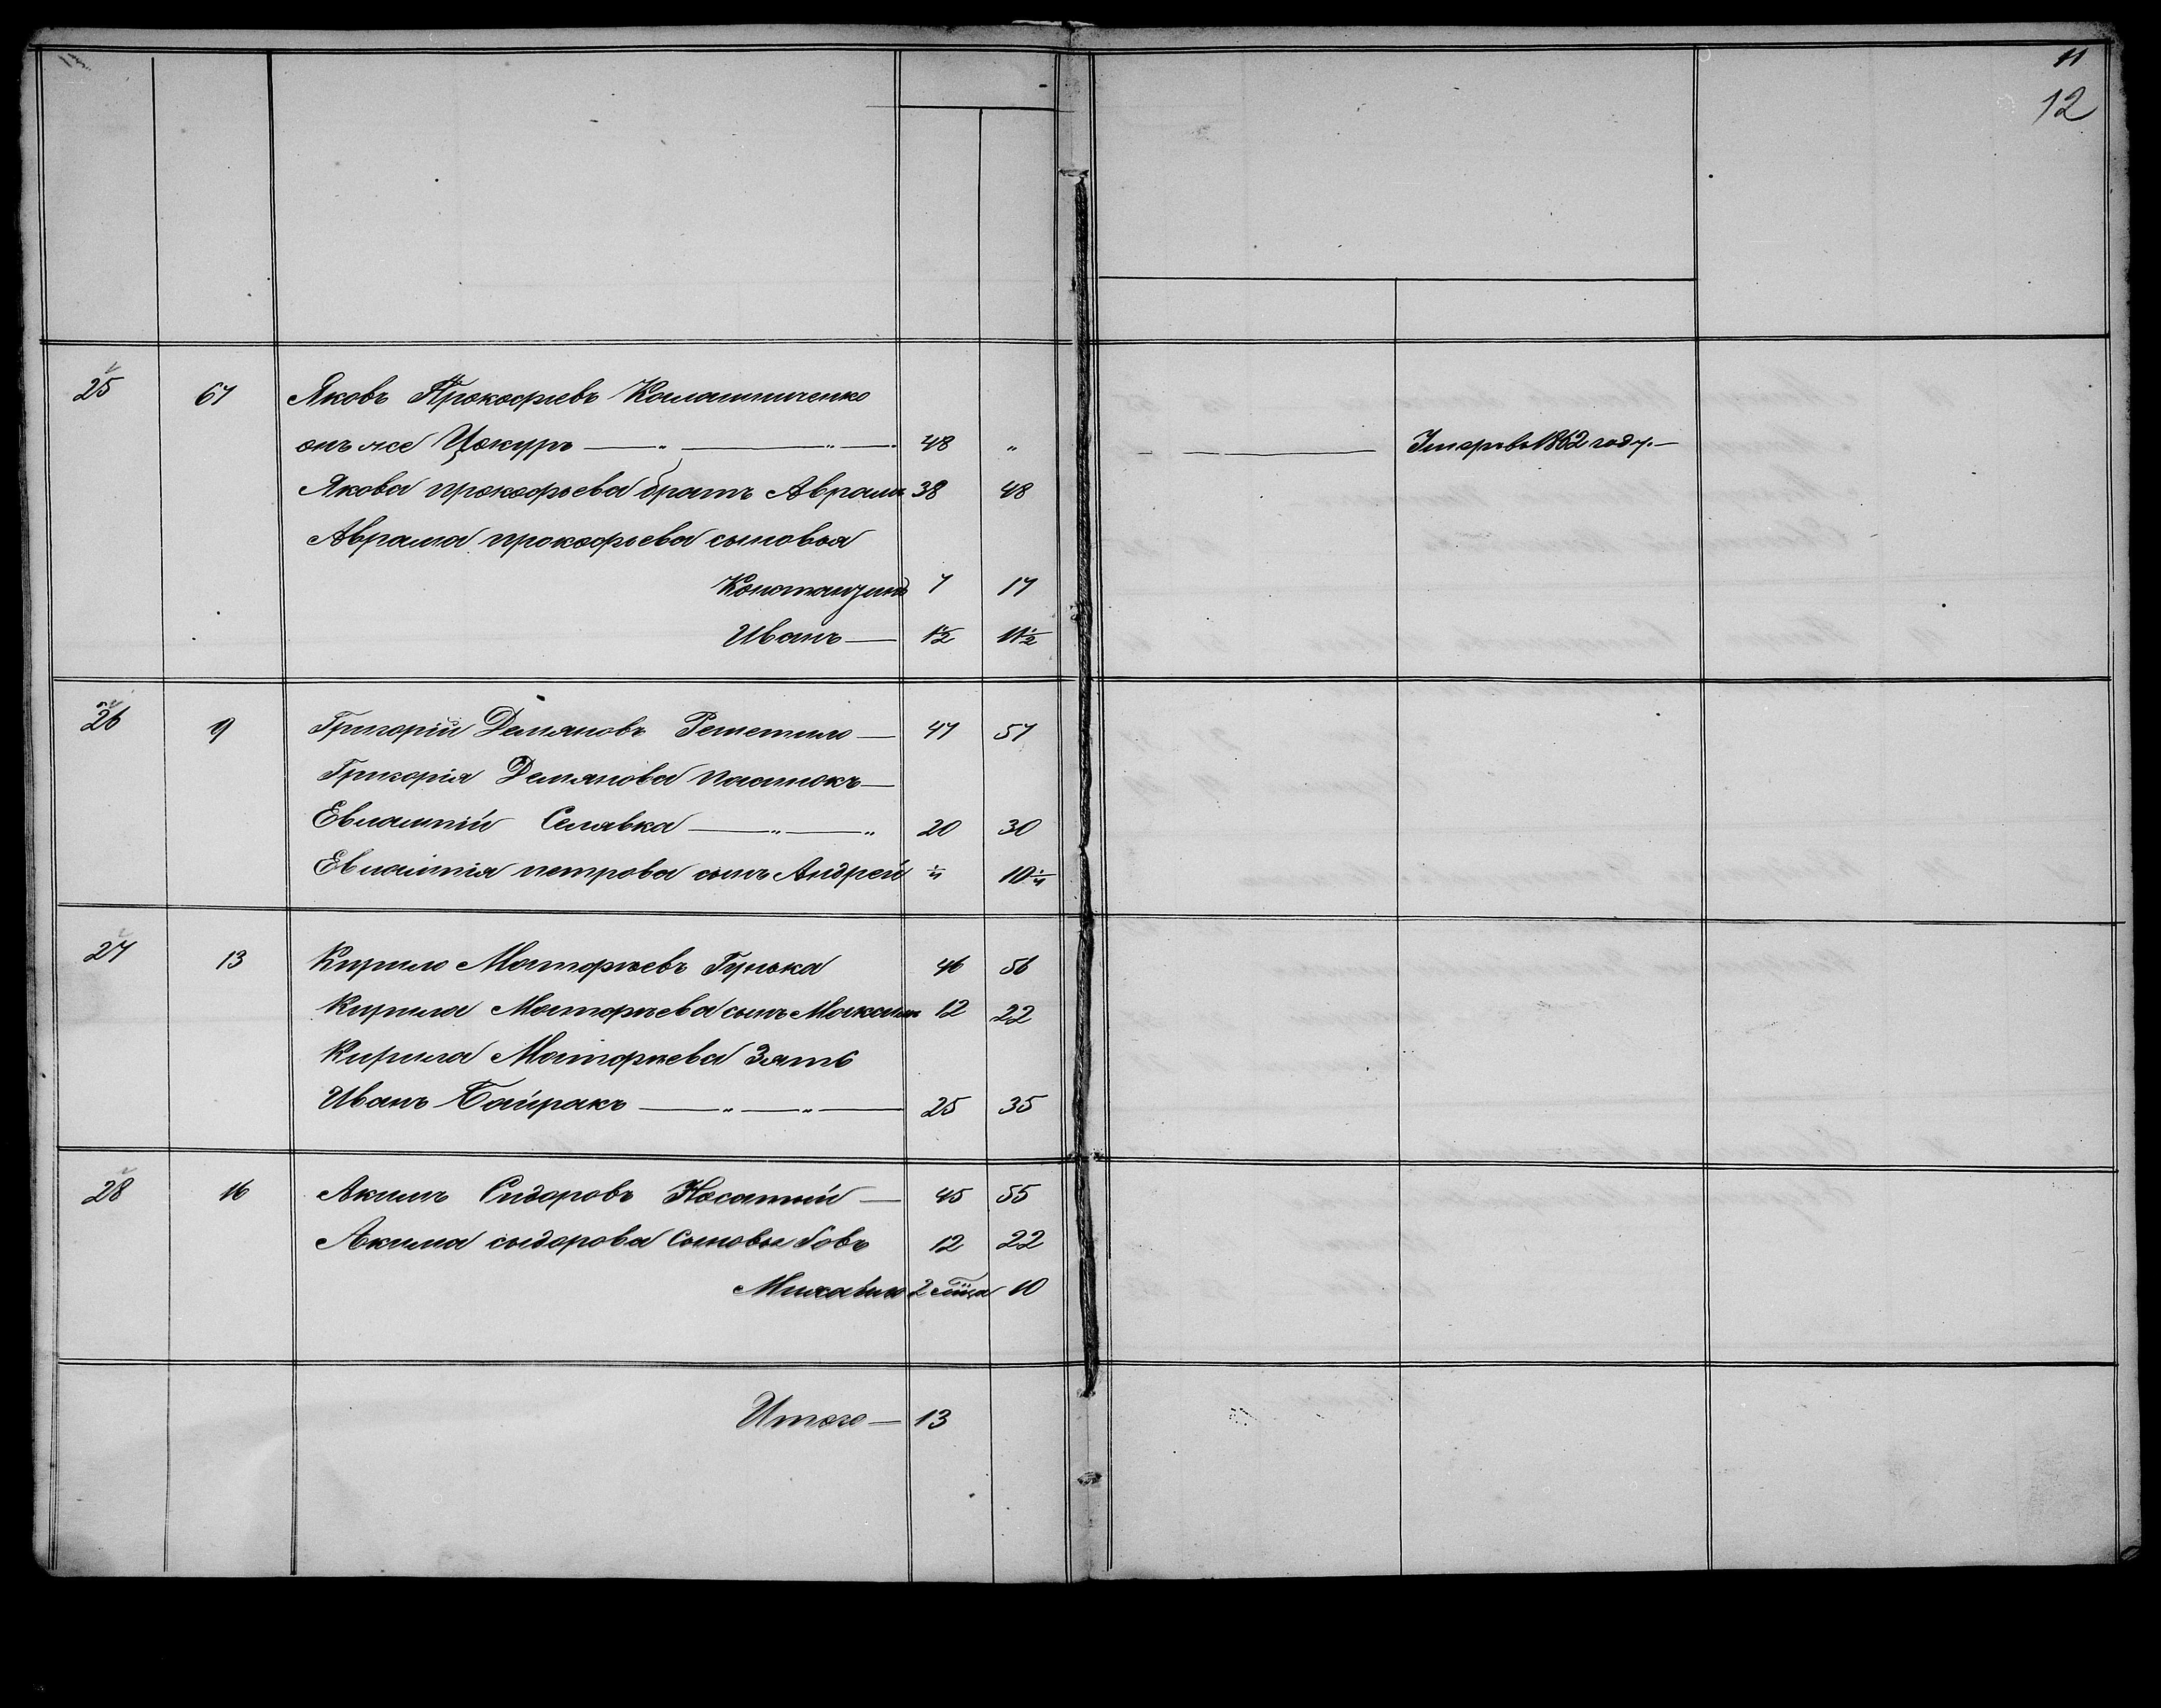 11
12
25 67 Яковъ Прокофіевъ Калашниченко
онъ же Цокуръ — „ — „ — 48 „ — — — Умеръ въ 1862 году. —
Якова прокофьева братъ Аврамъ 38 48
Аврама прокофьева сыновья
Константинъ 7 17
Иванъ — 1½ 11½
26 9 Григорій Демяновъ Решетило — 47 57
Григорія Демянова пасинокъ —
Евлампій Селявка — „ — „ 20 30
Евлампія петрова сынъ Андрей ¼ 10¼
27 13 Кирило Матфѣевъ Гунька 46 56
Кирила Матфѣева сынъ Максимъ 12 22
Кирила Матфѣева Зять
Иванъ Байракъ — „ — „ — 25 35
28 16 Акимъ Сидоровъ Носатый — 45 55
Акима сыдорова Сыновья Іовъ 12 22
Михаило 2 мѣца 10
Итого — 13